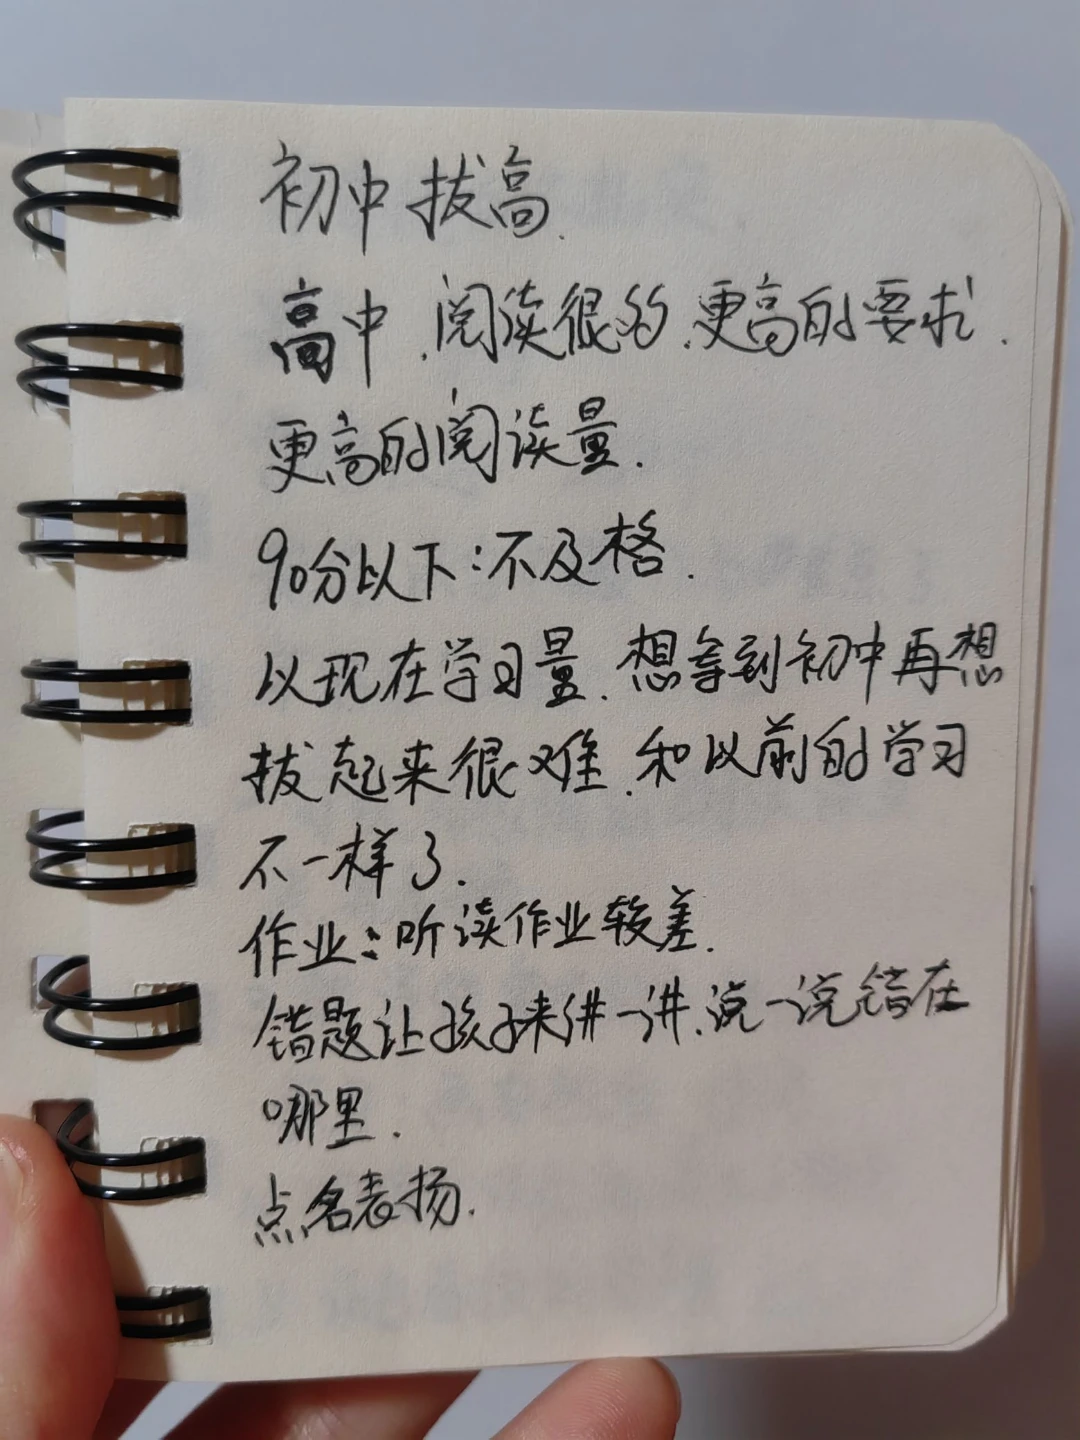 初中拔高.
高中.阅读很多.更高的要求.
更高的阅读量.
90分以下:不及格.
以现在学习量.想等到初中再想
拔起来很难.和以前的学习
不一样了.
作业:听读作业较差.
错题让孩子来讲一讲.说一说错在
哪里.
点名表扬.